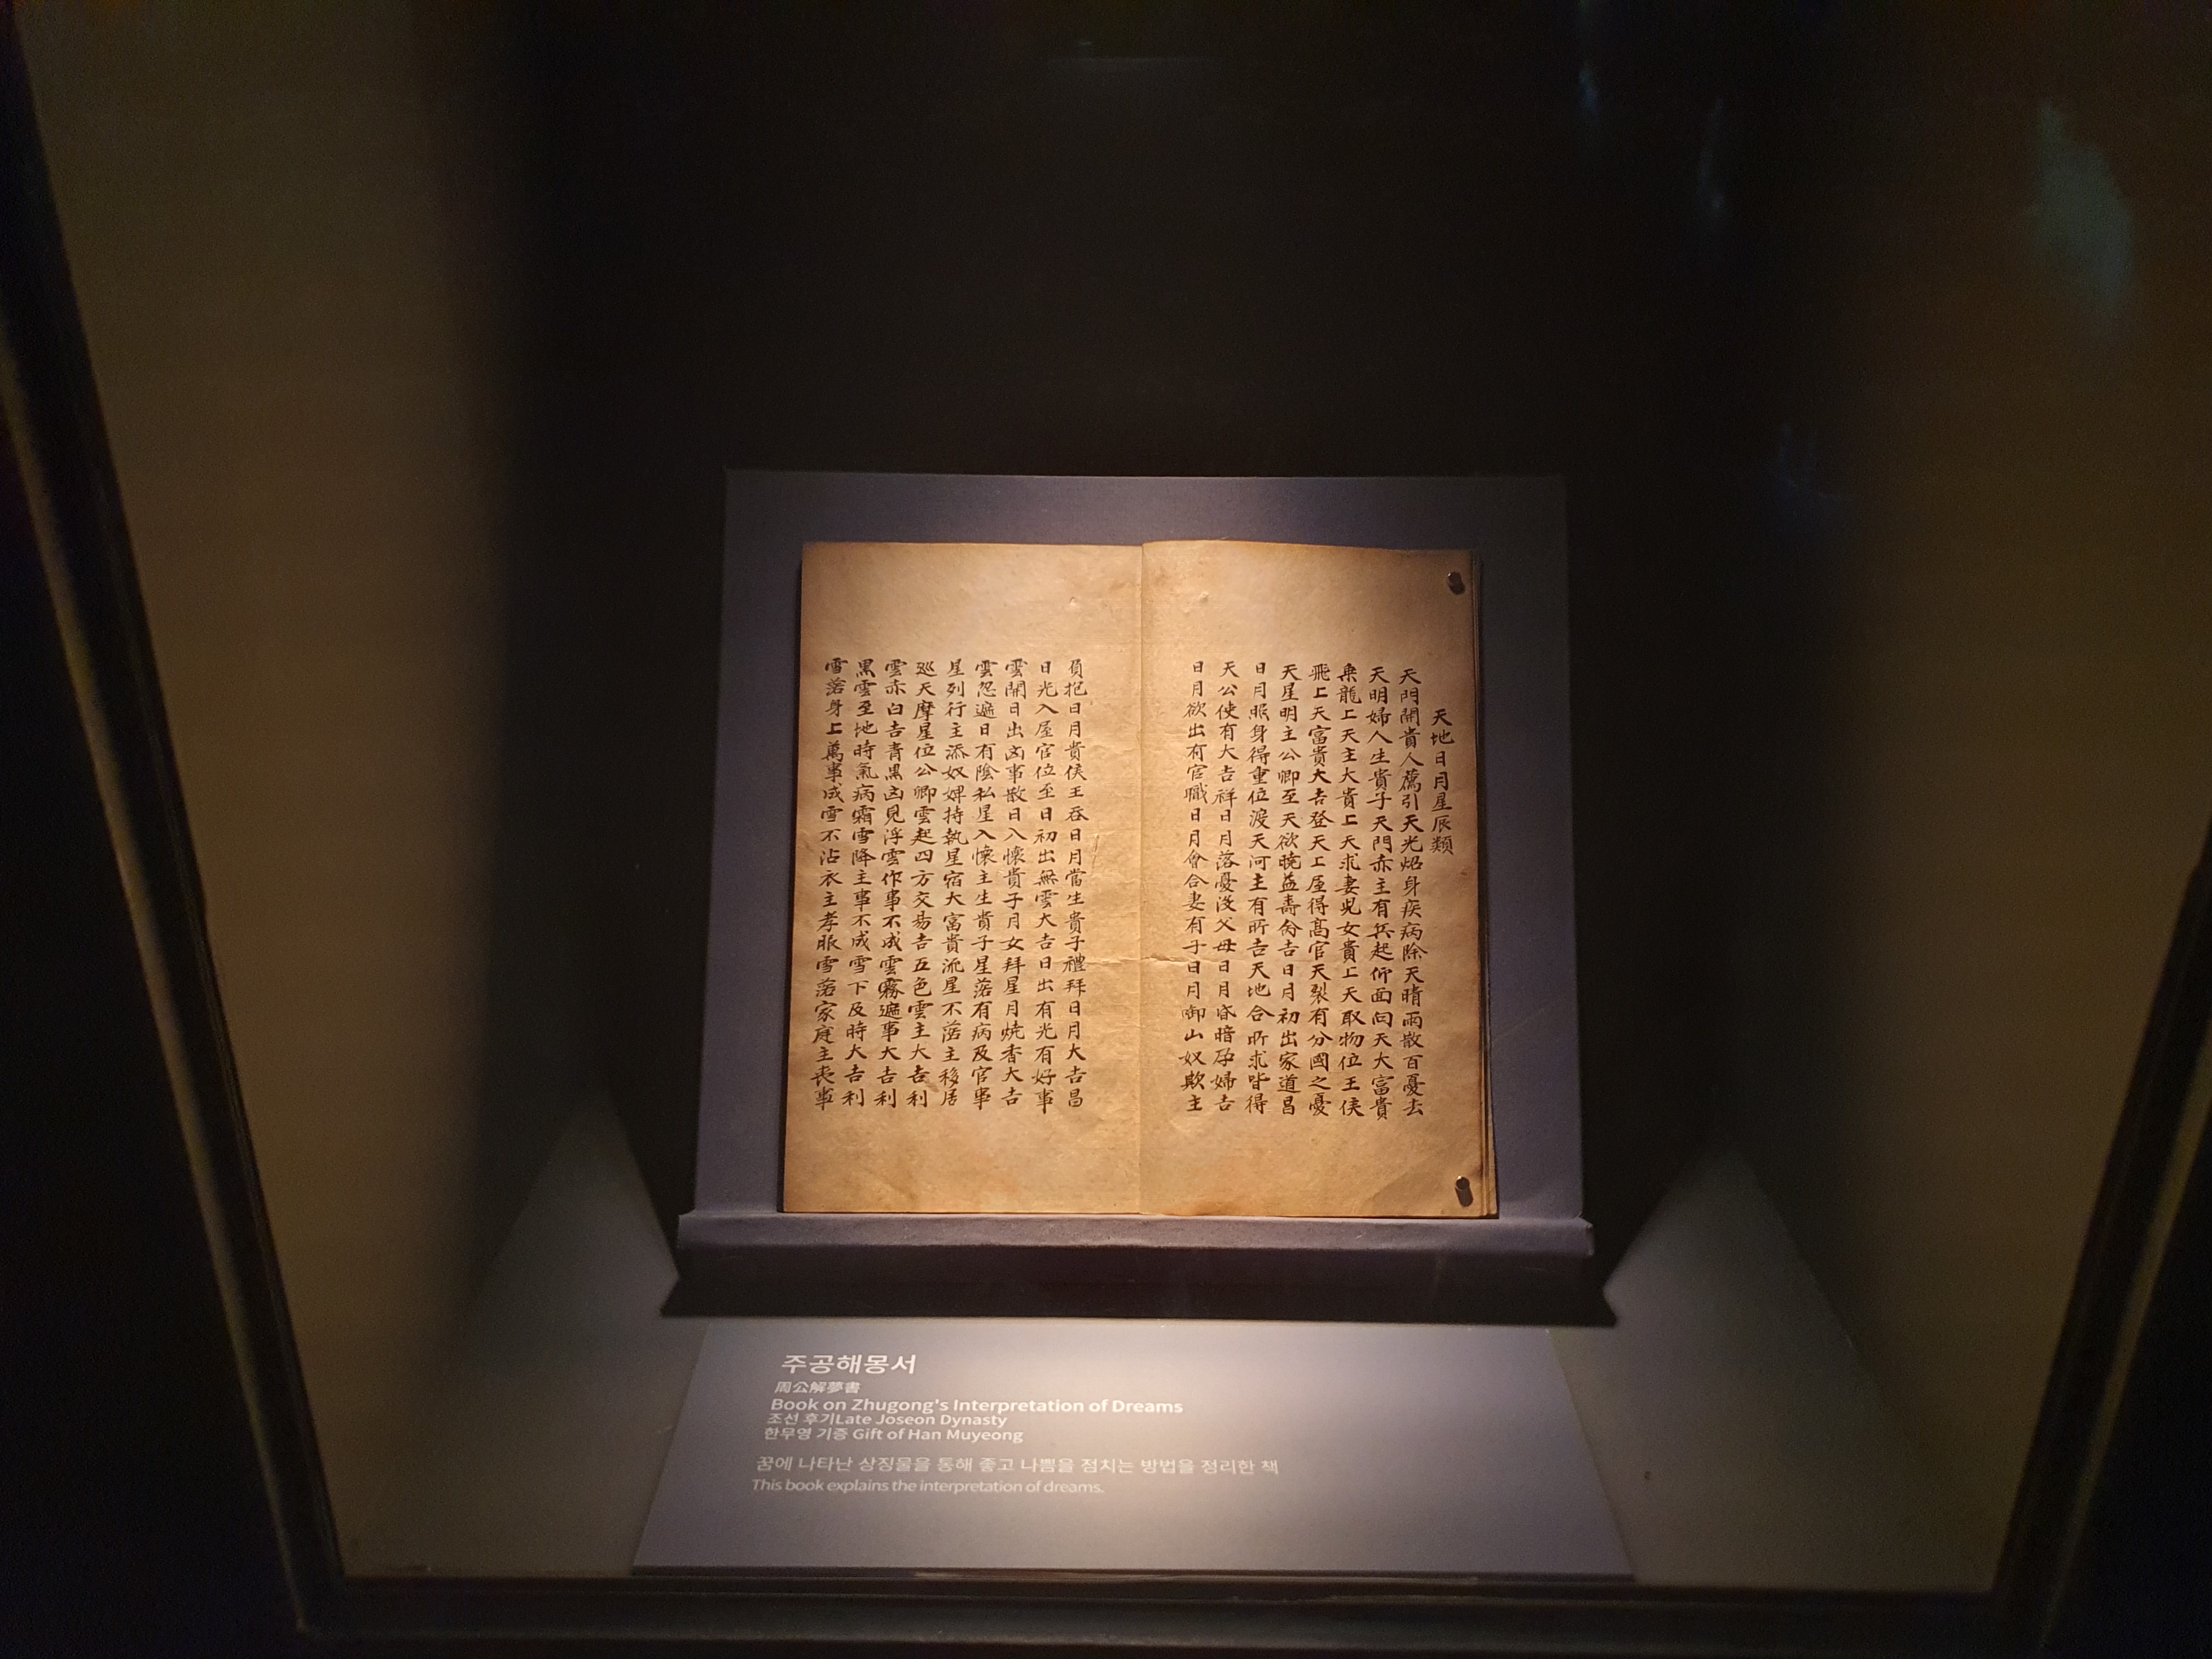 天地日月星辰類
天門開貴人薦引天光炤身疾病除天晴雨散百憂去
天明婦人生貴子天門赤主有兵起仰面向天大富貴
乗龍上天主大貴上天求妻児女貴上天取物位王侯
飛上天富貴大吉登天上屋得高官天裂有分國之憂
天星明主公卿至天欲曉益壽命吉日月初出家道昌
日月照身得重位渡天河主有所吉天地合所求皆得
天公使有大吉祥日月落憂沒父母日月昏暗孕婦吉
日月欲出有官職日月會合妻有子日月啣山奴欺主
負抱日月貴侯王吞日月當生貴子禮拜日月大吉昌
日光入屋官位至日初出無雲大吉日出有光有好事
雲開日出凶事散日入懷貴子月女拜星月燒香大吉
雲忽遮日有陰私星入懷主生貴子星落有病及官事
星列行主添奴婢持執星宿大富貴流星不落主移居
廵天摩星位公卿雲起四方交易吉五色雲主大吉利
雲赤白吉青黒凶見浮雲作事不成雲霧遮事大吉利
黒雲至地時氣病霜雪降主事不成雪下及時大吉利
雪落身上萬事成雪不沾衣主孝服雪落家庭主喪事
주공해몽서
周公解夢書
Book on Zhugong's Interpretation of Dreams
조선 후기Late Joseon Dynasty
한무영 기증 Gift of Han Muyeong
꿈에 나타난 상징물을 통해 좋고 나쁨을 점치는 방법을 정리한 책
This book explains the interpretation of dreams.